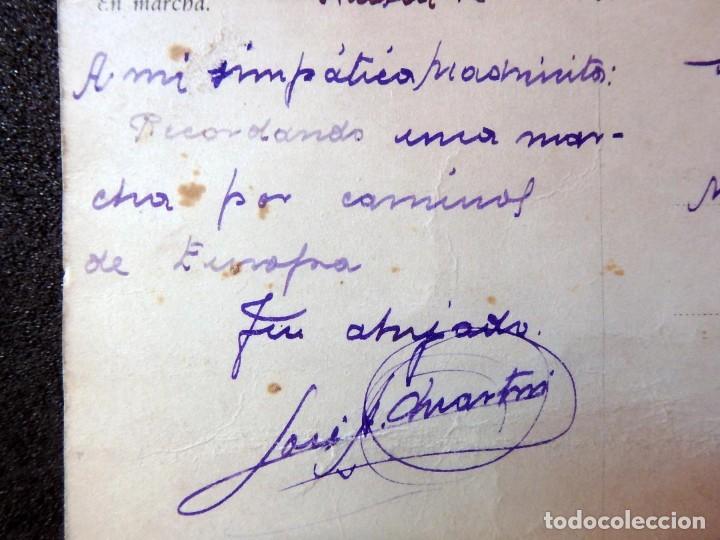 En marcha.
A mi simpática madrinita:
Recordando una mar-
cha por caminos
de Europa
Tu ahijado.
José A. Martni
todocoleccion